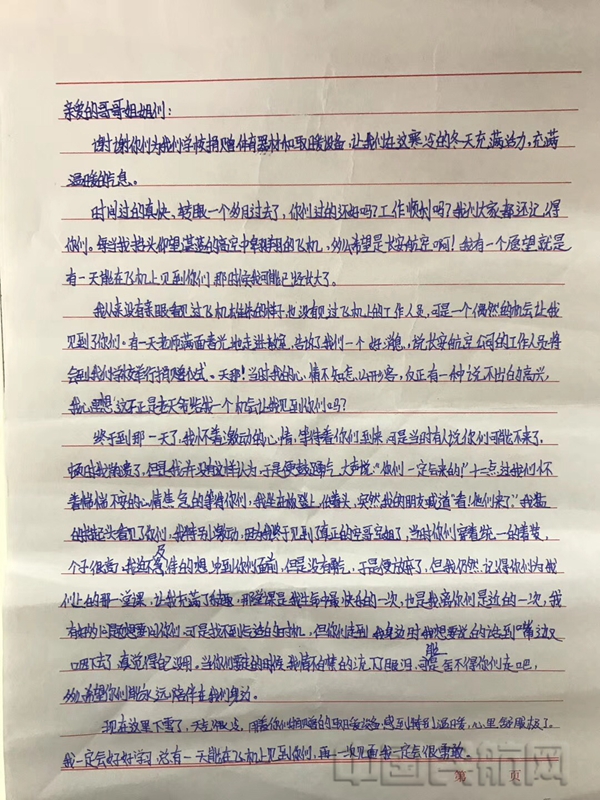 亲爱的哥哥姐姐们：
谢谢你们为我们学校捐赠体育器材和取暖设备，让我们在这寒冷的冬天充满活力，充满
温暖的信息。
时间过的真快、转眼一个多月过去了，你们过的还好吗？工作顺利吗？我们大家都还记得
你们。每当我抬头仰望湛蓝的高空中翱翔的飞机，多么希望是长安航空啊！我有一个愿望就是
有一天能在飞机上见到你们那时候我可能已经长大了。
我从来没有亲眼看见过飞机本来的样子，也没有见过飞机上的工作人员，可是一个偶然的机会让我
见到了你们。有一天老师满面春光地走进教室，告诉了我们一个好消息，说长安航空公司的工作人员将
会到我们学校举行捐赠仪式。天那！当时我的心情不知怎么形容，反正有一种说不出的高兴，
我心里想这不正是老天爷给我一个机会让我见到你们吗？
终于到那一天了，我怀着激动的心情，等待着你们到来，可是当时有人说你们可能不来了，
顿时我崩溃了，但是我并没有这样认为，于是便鼓起勇气大声说："你们一定会来的"十二点过我们怀
着惴惴不安的心情焦急的等待你们，我是在板凳上低着头，突然我的朋友喊道"看！他们来了"我猛
的抬起头看见了你们，我特别激动，因为我终于见到了真正的空哥空姐了，当时你们穿着统一的着装，
个子很高，我迫不及待的想冲到你们面前，但是没有勇气，于是便放弃了，但我仍然记得你们为我
们上的那一堂课，让我充满了乐趣，那堂课是我生命中最快乐的一次，也是我离你们最近的一次，我
有好多问题想要问你们，可是找不到合适的时机，但你们走到我身边时我想要说的话到嘴边又
咽下去了，真觉得自己没用。当你们要走的时候我情不自禁的流下了眼泪，可能是舍不得你们走吧，
多么希望你们能永远陪伴在我们身边。
现在这里下雪了，天气很冷，用着你们捐赠的取暖设备感到特别温暖，心里舒服极了。
我一定会好好学习，总有一天能在飞机上见到你们，再一次见面我一定会很勇敢。
第 页
中国民航网